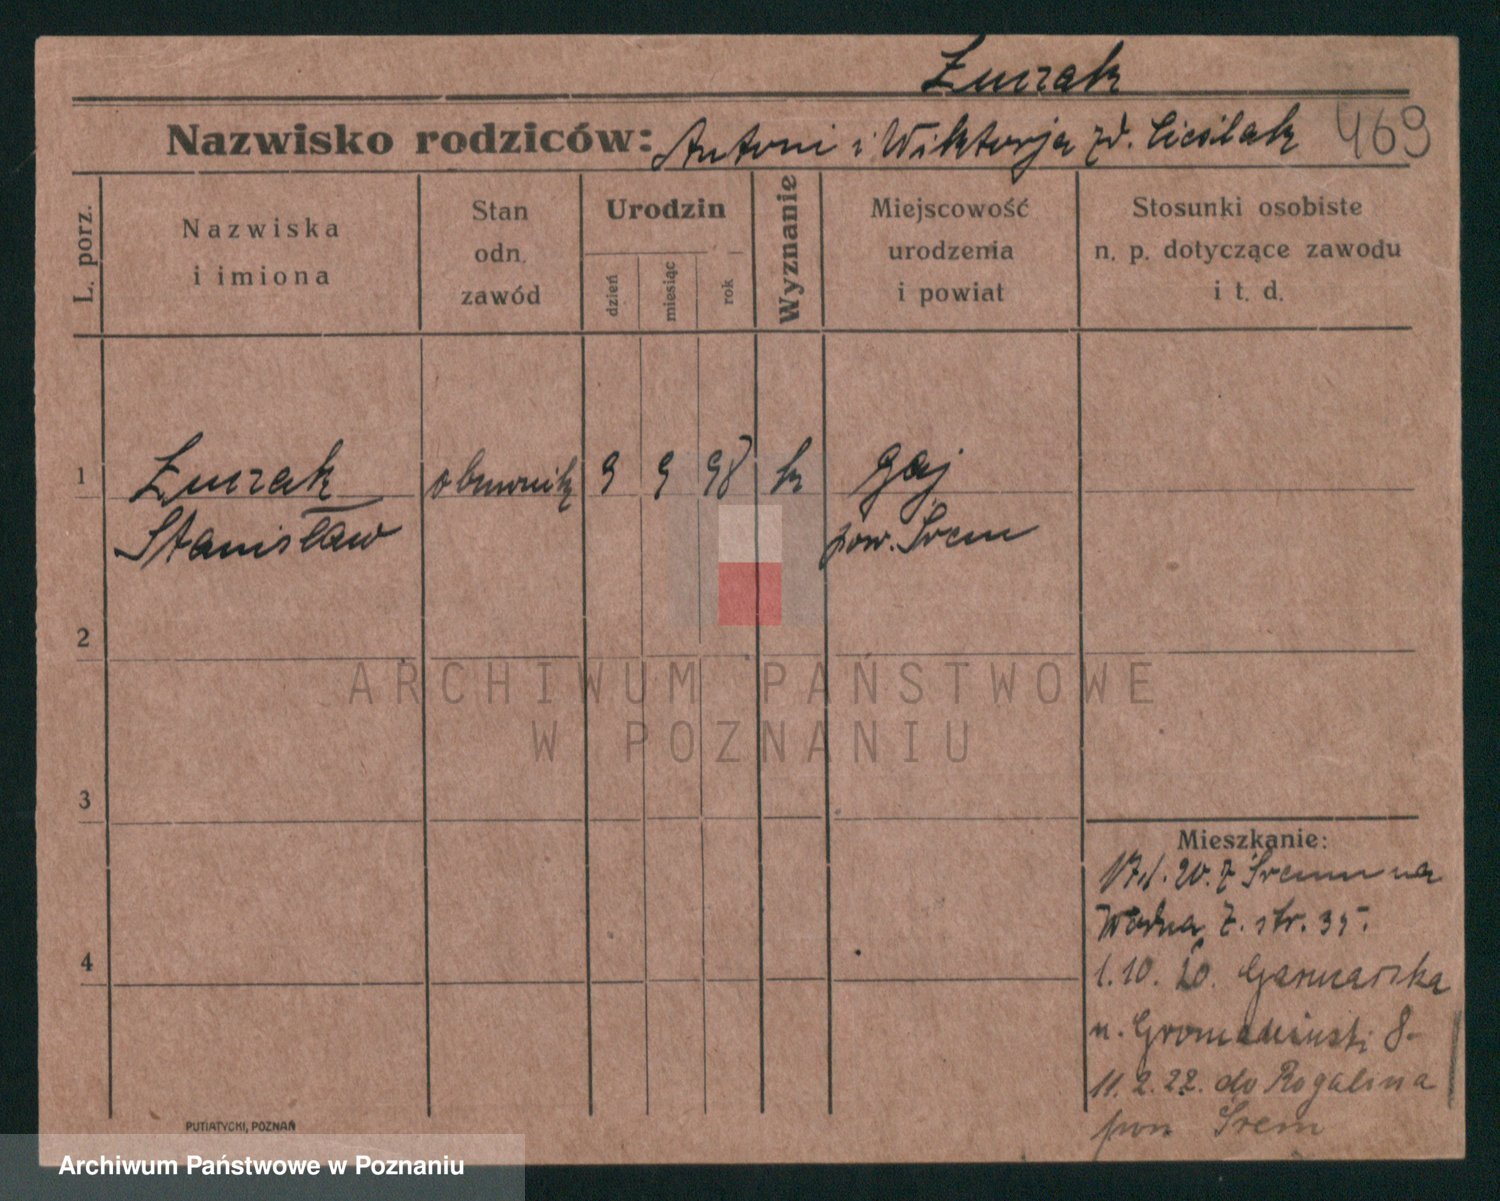 Żuczak
Nazwisko rodziców: Antoni i Wiktorja zd. Cieślak 469
L. porz.
Nazwiska
i imiona
Stan
odn.
zawód
Urodzin
dzień
miesiąc
rok
Wyznanie
Miejscowość
urodzenia
i powiat
Stosunki osobiste
n. p. dotyczące zawodu
i t. d.
1 Żuczak obuwnik 9 9 98 k Gaj
Stanisław pow. Śrem
2
3
4
Mieszkanie:
20. z Śremu na
Wodna 7. str. 35.
1.10. 20. Garncarska
u. 8.
11.2.22. do Rogalina
pow Śrem
PUTIATYCKI, POZNAŃ
ARCHIWUM PAŃSTWOWE
W POZNANIU
Archiwum Państwowe w Poznaniu